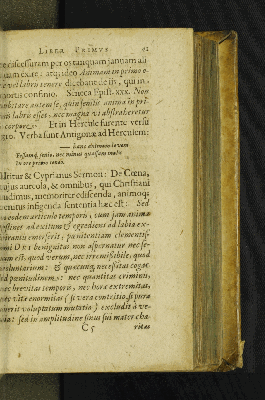 LIBER PRIMVS. 41
e excessuram per os tanquam januam ali
exire: atque ideo Animam in primo o
vel labro tenere dicebantur ij, qui in
mortis confinio. Seneca Epist. xxx. Non
dubitare autem se, quin senilis anima in pri-
mis labris esset, nec magna vi abstraheretur
corpore. Et in Hercule furente versu
310. Verba sunt Antigonæ ad Herculem:
hanc animam levem
Fessamque senio, nec minus quassam malis
In ore primo teneo.
Meritur & Cyprianus Sermon: De Cœna,
ujus aureola, & omnibus, qui Christiani
audimus, memoriter ediscenda, animoque
penitus infigenda sententia hæc est: Sed
eodem articulo temporis, cum jam anima
festinet ad exitum & egrediens ad labia ex-
pirantis emerserit, pœnitentiam clementis-
simi DEI benignitas non aspernatur nec se-
rum est, quod verum, nec irremissibile, quod
voluntarium: & quacunque necessitas cogat
ad pœnitudinem: nec quantitas criminis,
nec brevitas temporis, nec hora extremitas,
nec vitæ enormitas (si vera contritio, si pura
fuerit voluptatum mutatio) excludit à ve-
nia: sed in amplitudine sinus sui mater cha-
C 5 ritas